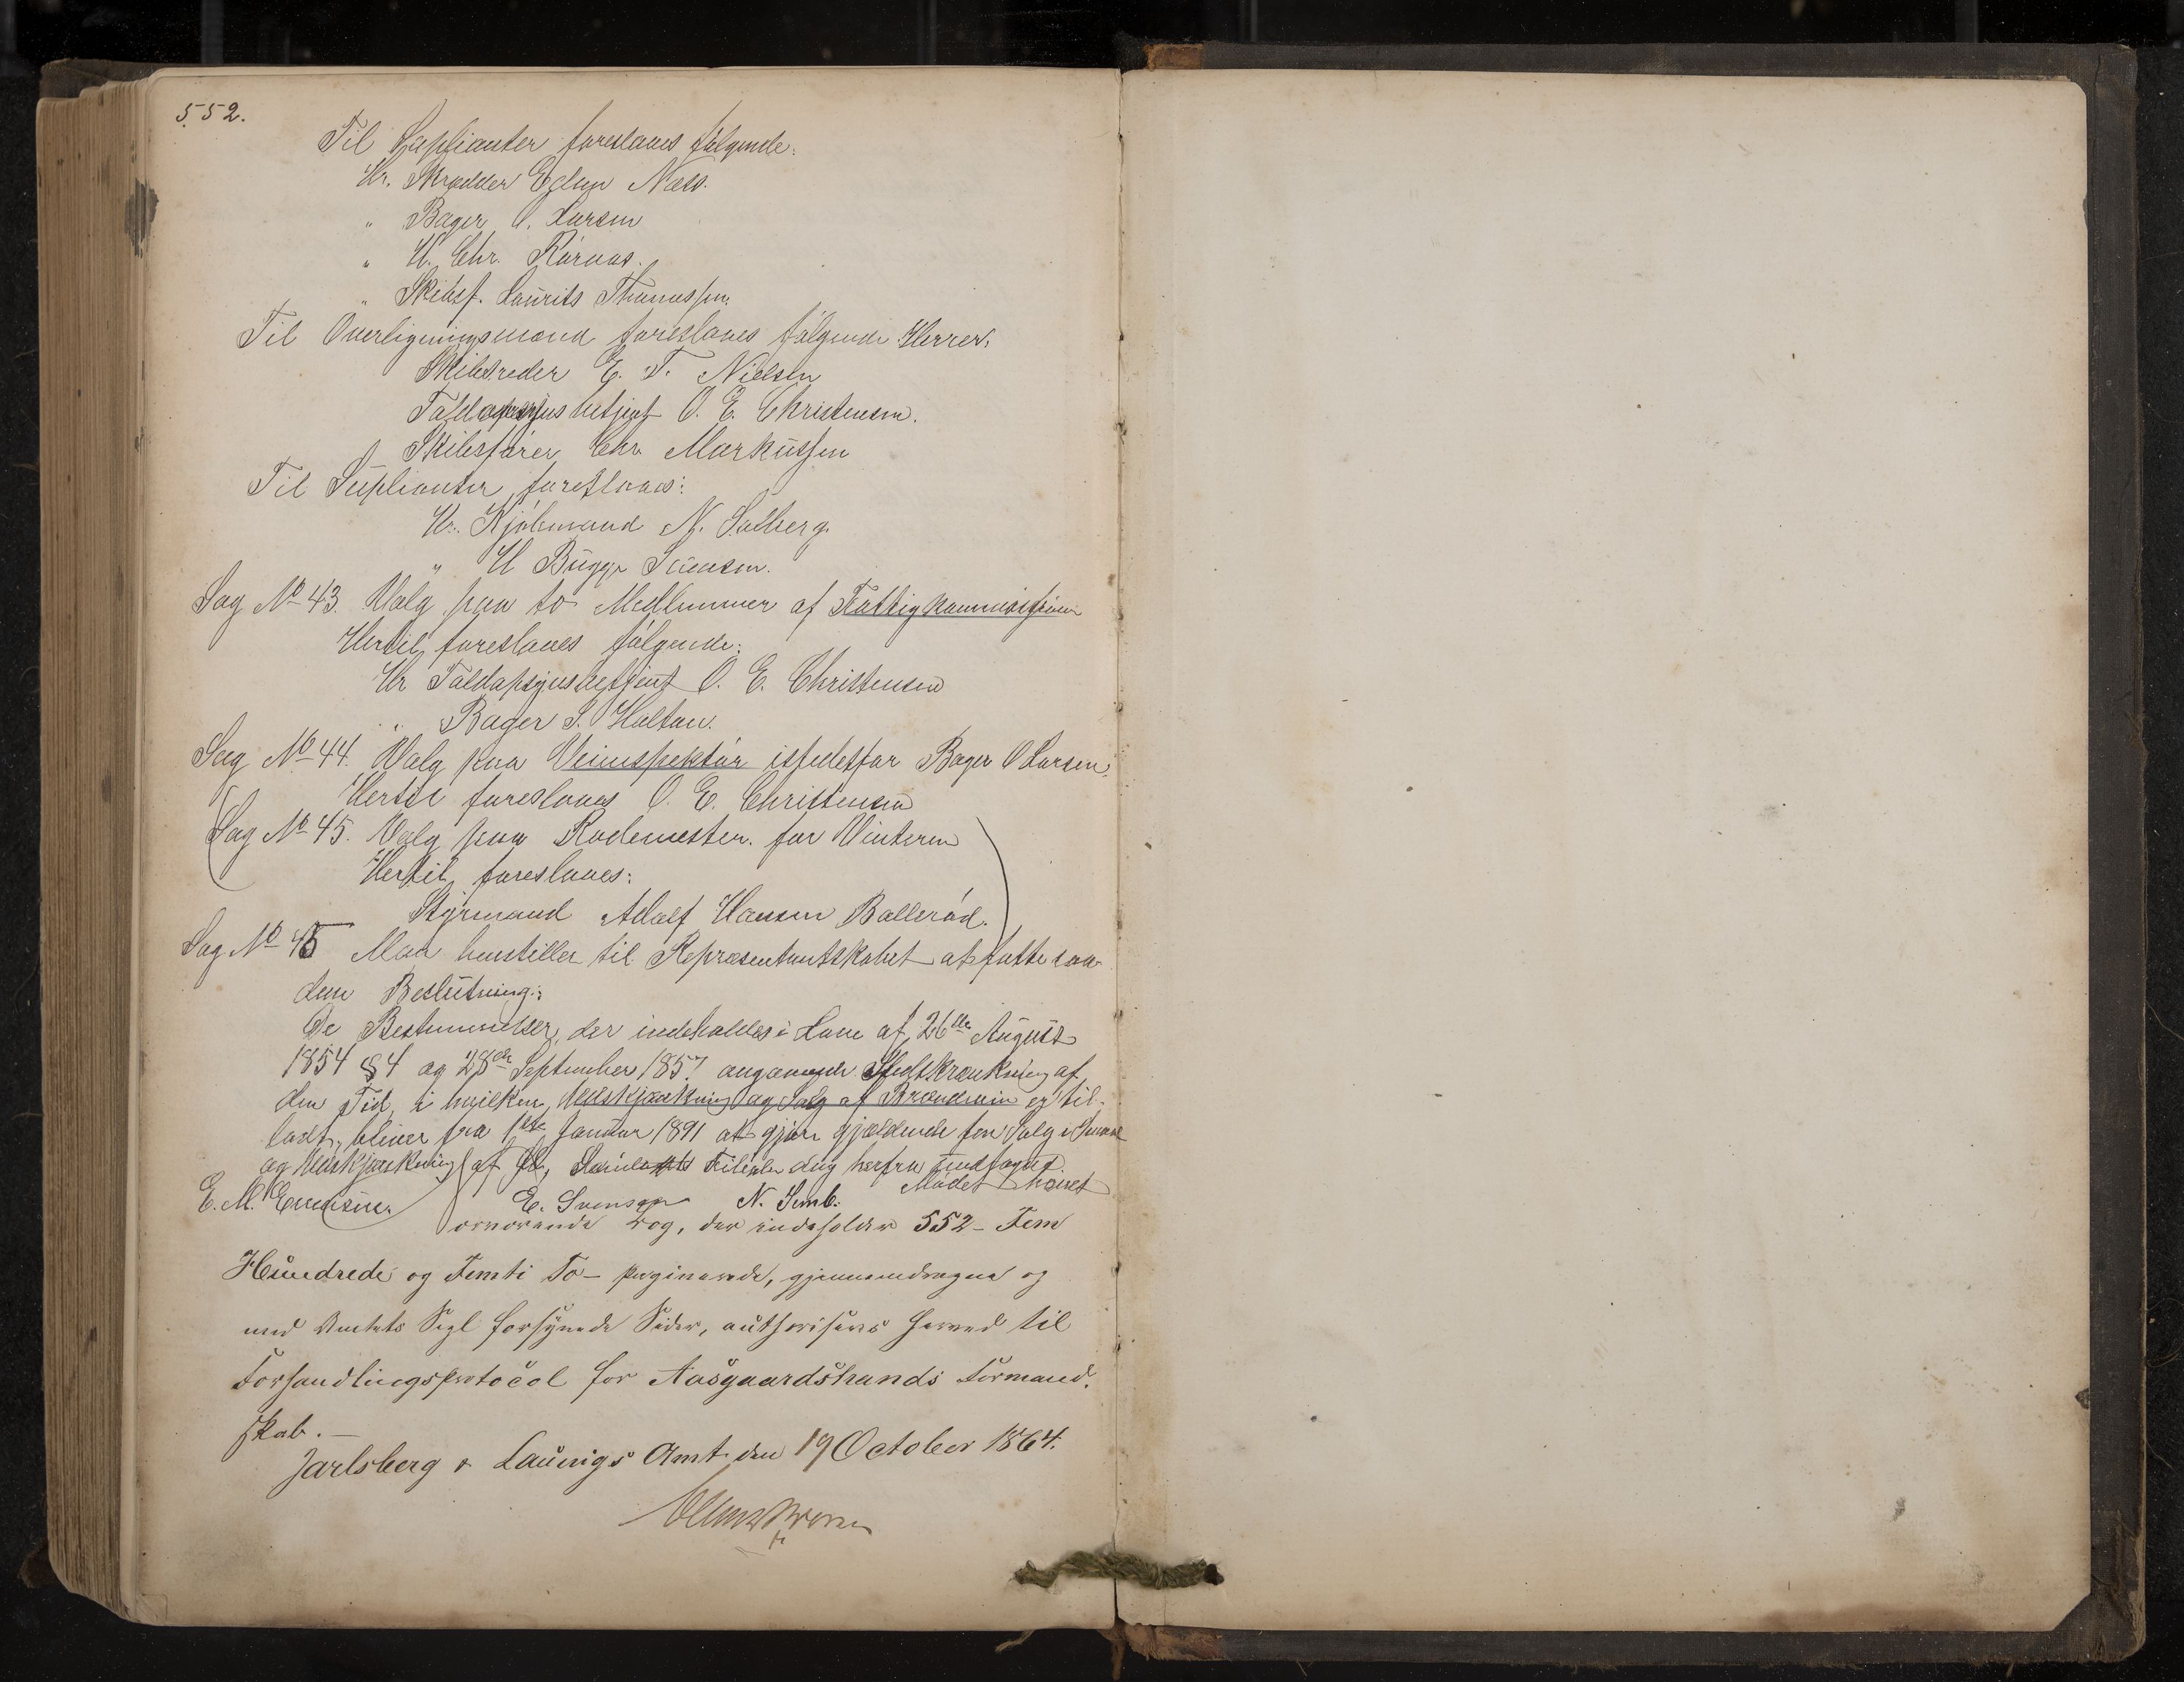 552.
Til Suplianter foreslaaes følgende:
Hr. Skrædder Edlun Næss.
" Bager O. Larsen
" H. Chr. Rørnæs.
" Skibsf. Laurits Thomassen.
Til Overligningsmænd foreslaaes følgende Herrer:
Skibsreder E. F. Nielsen
Toldopsynsbetjent O. E. Christensen.
Skibsfører Chr. Markussen
Til Suplianter foreslaaes:
Hr. Kjøbmand N. Solberg.
" H Bugge
Sag No 43. Valg paa to Medlemmer af Fattigkommissionen
Hertil foreslaaes følgende:
Hr Toldopsynsbetjent O. E. Christensen
" Bager S. Holtan.
Sag No 44. Valg paa Veiinspektør istedetfor Bager O Larsen.
Hertil foreslaaes O. E. Christensen
(Sag No 45. Valg paa Rodemester for Vinteren
Hertil foreslaaes:
Styrmand Adolf Hansen Ballerød.)
Sag No 45 Man henstiller til Repræsentantskabet at fatte saa-
dan Beslutning:
De Bestemmelser, der indeholdes i Love af 26de August
1854 § 4 og 28de September 1857 angaaende Indskrænkning af
den Tid, i hvilken Udskjænkning og Salg af Brændevin er til-
ladt, bliver fra 1ste Januar 1891 at gjøre gjældende for Salg i Smaat
og Udskjænkning af Øl, dog herfra undtaget
Mødet hævet
E. M. E. Svensen N. Semb.
Foranførende Bog, der indeholder 552 - Fem
Hundrede og Femti To - paginerede, gjennemdragne og
med Amtets Segl forsynede Sider, authoriseres herved til
Forhandlingsprotocol for Aasgaardstrands Formand-
skab. -
Jarlsberg & Laurvigs Amt den 19 October 1864.